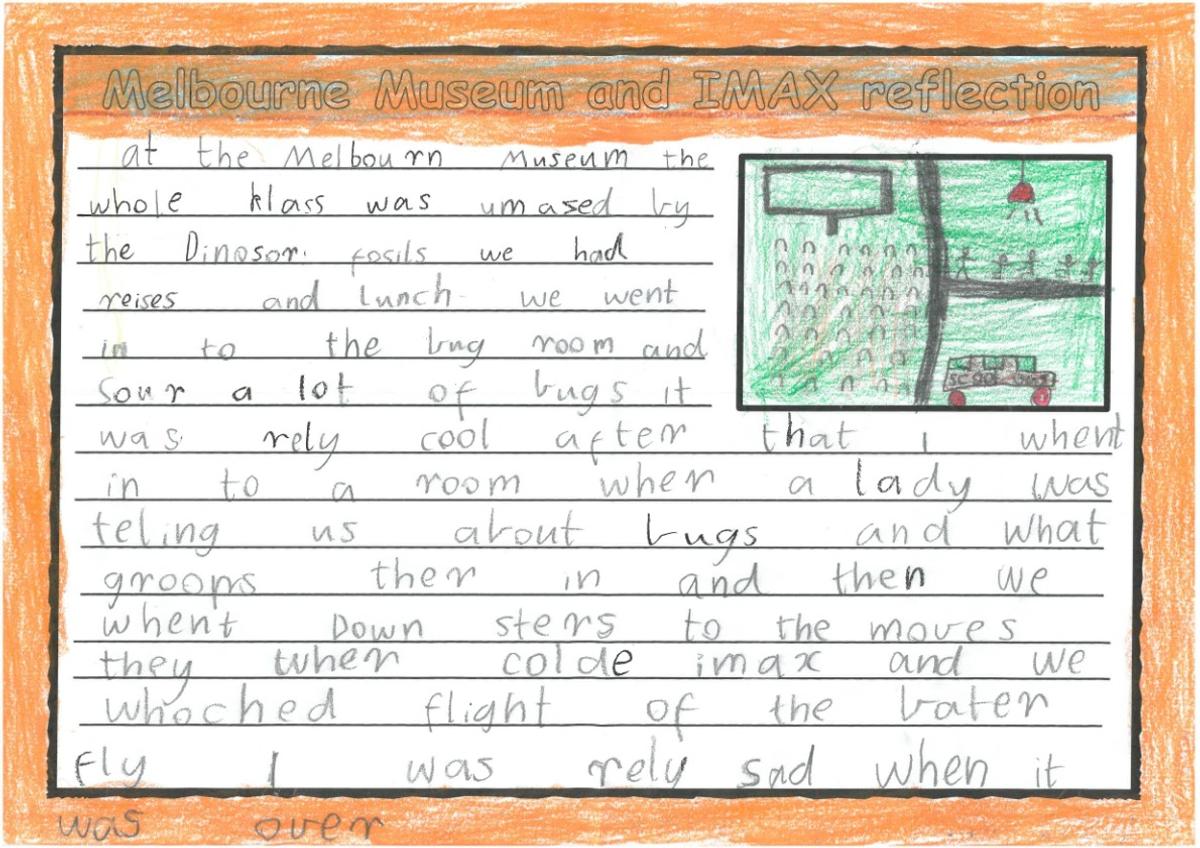 Melbourne Museum and IMAX reflection
at the Melbourn Museum the
whole klass was umased by
the Dinosor fosils we had
reises and lunch we went
in to the bug room and
sour a lot of bugs it
was rely cool after that I whent
in to a room wher a lady was
teling us about bugs and what
groops ther in and then we
whent Down sters to the moves
they wher colde imax and we
whoched flight of the bater
fly I was rely sad when it
was over